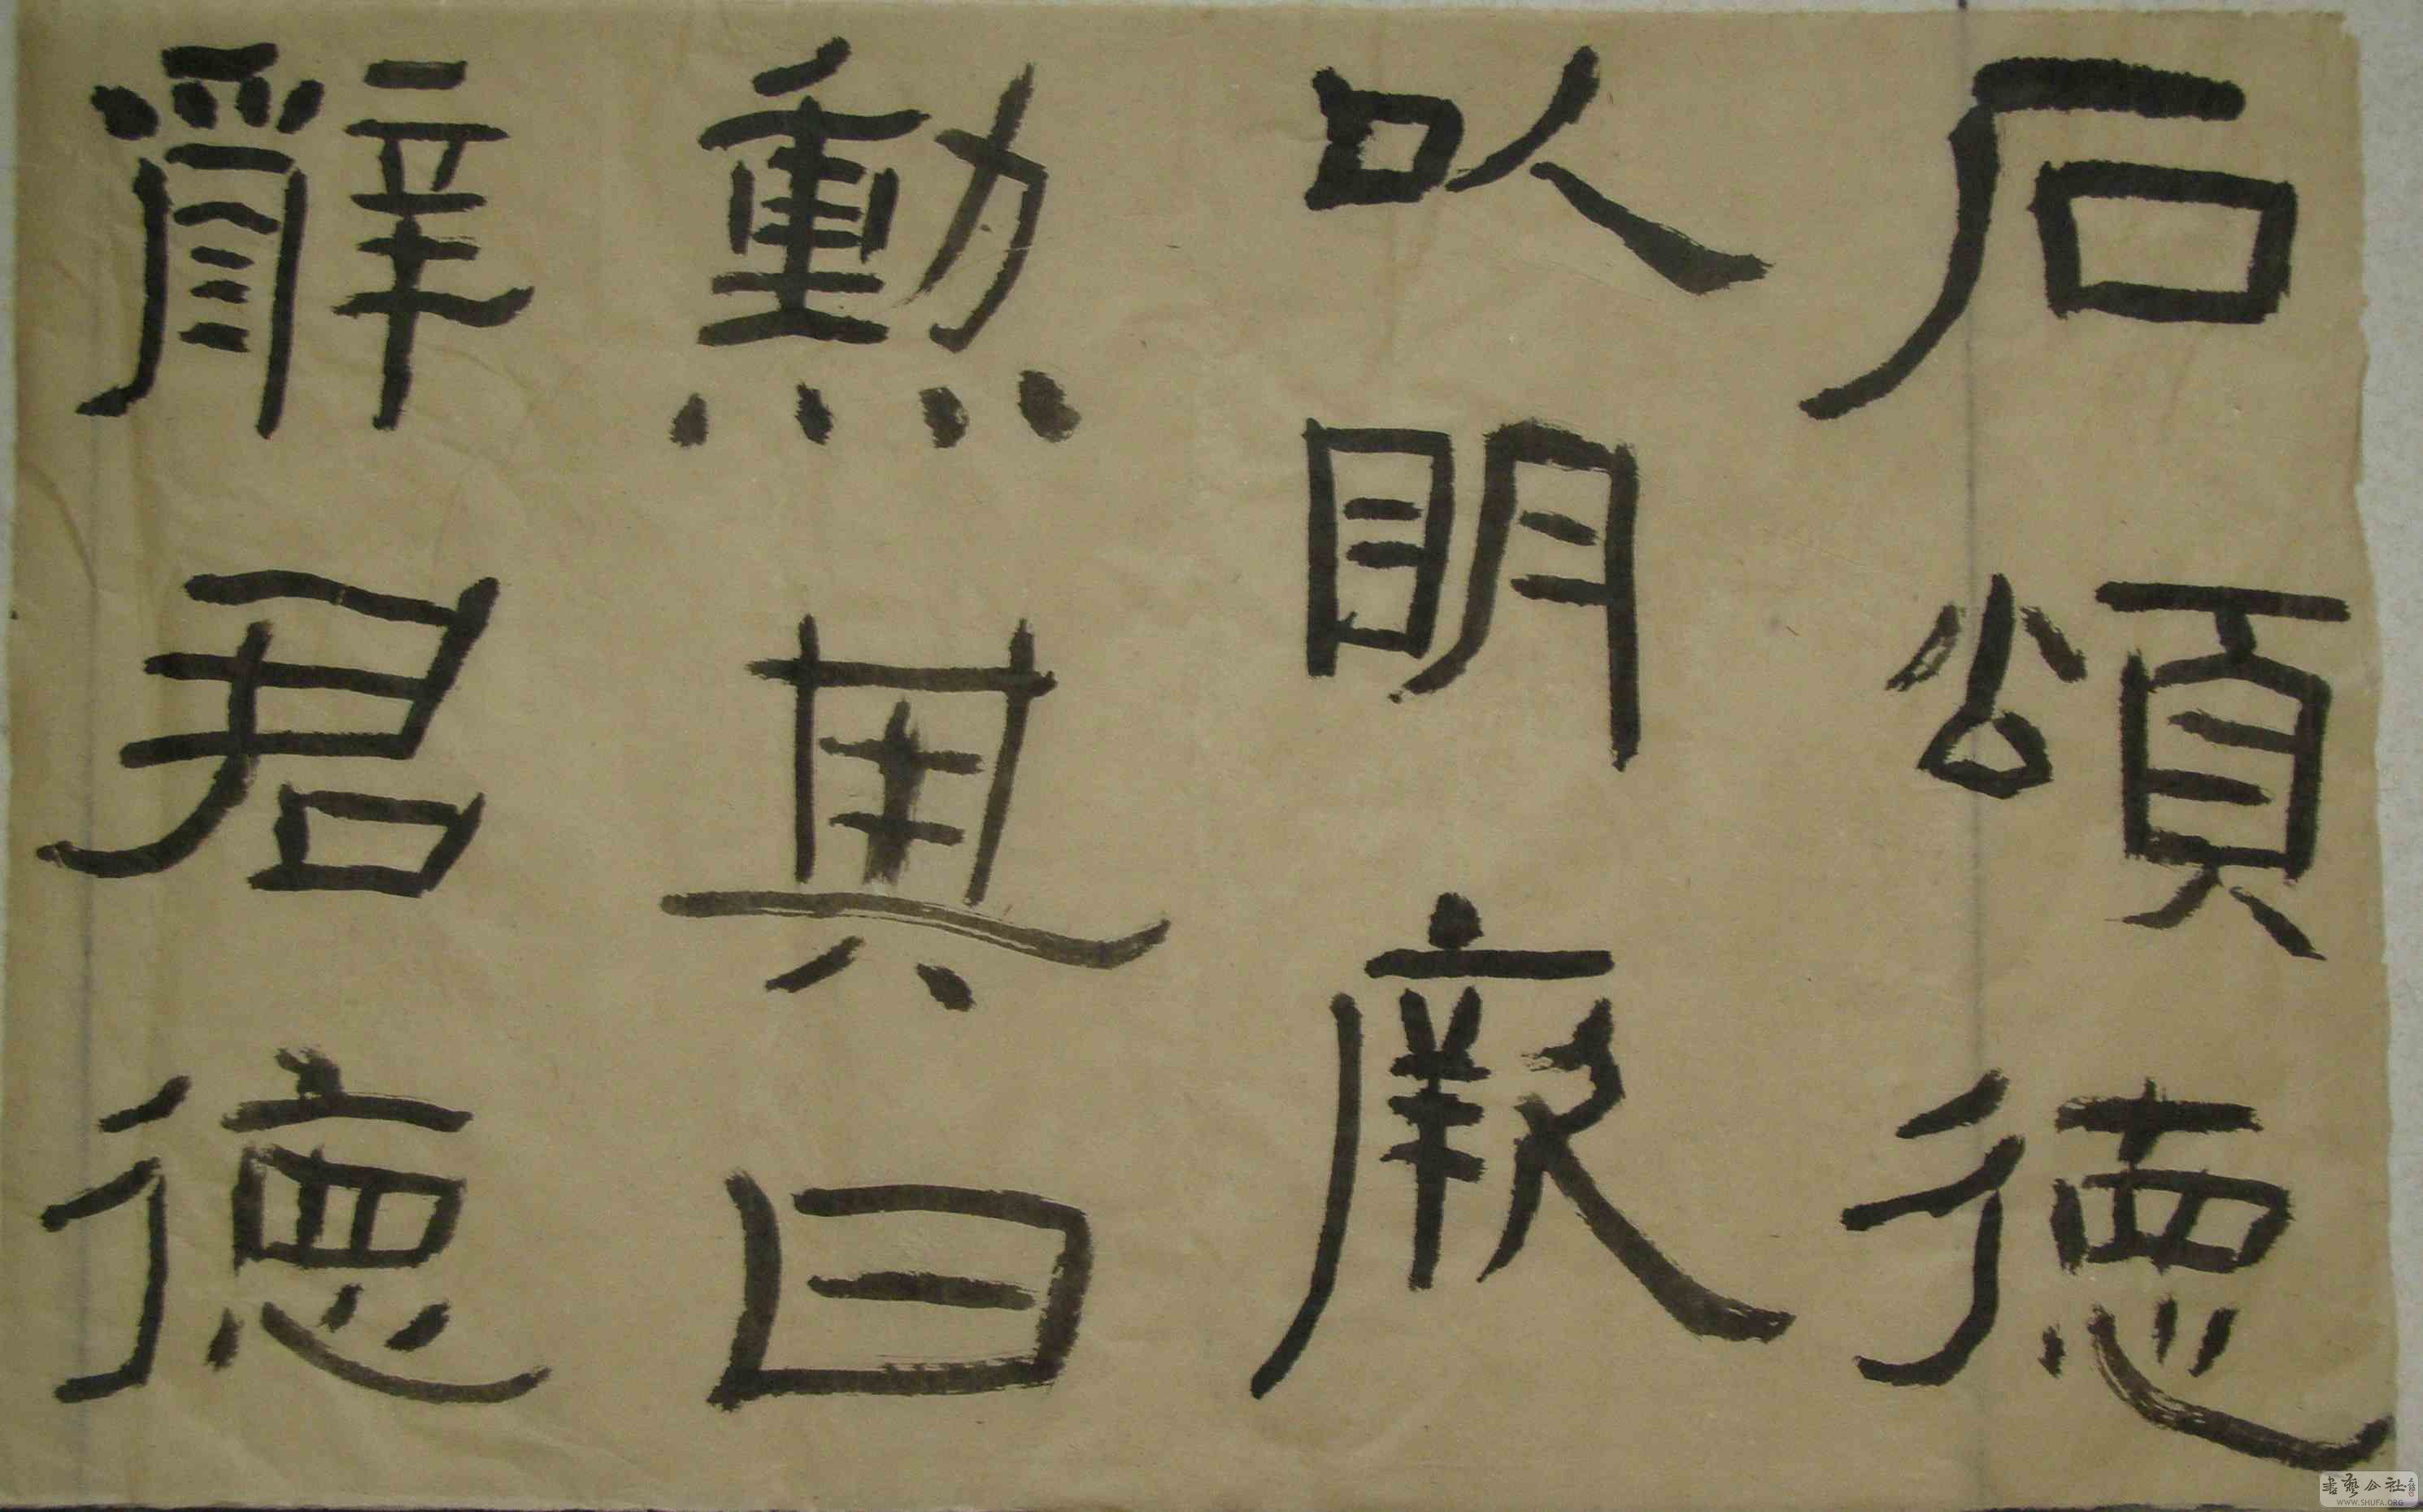 石頌德
以明厥
勳其曰
辭君德
書藝公社
WWW.SHUFA.ORG